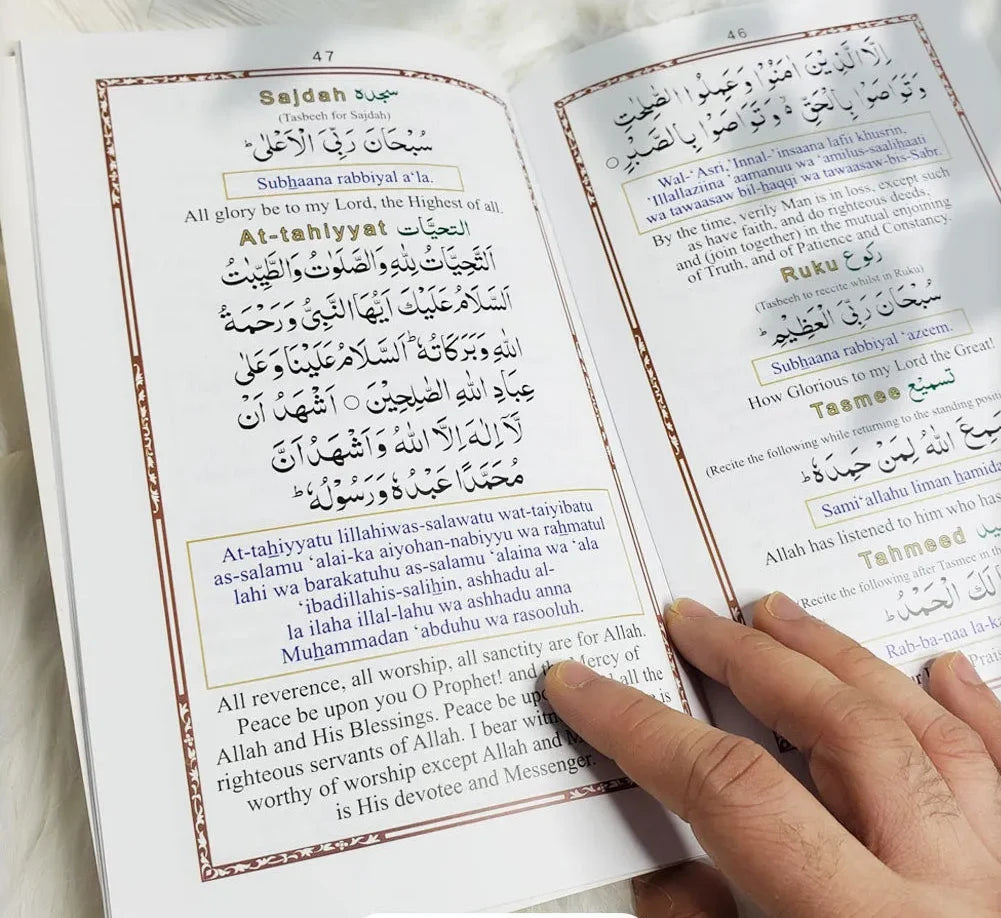 46
اِلَّا الَّذِيْنَ اٰمَنُوْا وَعَمِلُوا الصّٰلِحٰتِ
وَتَوَاصَوْا بِالْحَقِّ ۙ وَتَوَاصَوْا بِالصَّبْرِ ○
Wal-‘Asri, ’Innal-’insaana lafii khusrin,
’Illallaziina ’aamanuu wa ‘amilus-saalihaati
wa tawaasaw bil-haqqi wa tawaasaw-bis-Sabr.
By the time, verily Man is in loss, except such
as have faith, and do righteous deeds,
and (join together) in the mutual enjoining
of Truth, and of Patience and Constancy.
Ruku رکوع
(Tasbeeh to reccite whilst in Ruku)
سُبْحَانَ رَبِّیَ الْعَظِيْمِ ؕ
Subhaana rabbiyal ‘azeem.
How Glorious to my Lord the Great!
Tasmee تسمیع
(Recite the following while returning to the standing
اللهُ لِمَنْ حَمِدَهٗ ؕ
Sami‘allahu liman hamida
Allah has listened to him who has
Tahmeed
(Recite the following after Tasmee in the
لَكَ الْحَمْدُ ؕ
Rab-ba-naa
47
Sajdah سجدہ
(Tasbeeh for Sajdah)
سُبْحَانَ رَبِّیَ الْاَعْلٰی ؕ
Subhaana rabbiyal a‘la.
All glory be to my Lord, the Highest of all.
At-tahiyyat التحیَّات
اَلتَّحِيَّاتُ لِلّٰهِ وَالصَّلَوٰتُ وَالطَّيِّبٰتُ
اَلسَّلَامُ عَلَيْكَ اَيُّهَا النَّبِیُّ وَرَحْمَةُ
اللهِ وَبَرَكَاتُهٗ ؕ اَلسَّلَامُ عَلَيْنَا وَعَلٰی
عِبَادِ اللهِ الصّٰلِحِيْنَ ○ اَشْهَدُ اَنْ
لَّآ اِلٰهَ اِلَّا اللهُ وَاَشْهَدُ اَنَّ
مُحَمَّدًا عَبْدُهٗ وَرَسُوْلُهٗ ؕ
At-tahiyyatu lillahiwas-salawatu wat-taiyibatu
as-salamu ‘alai-ka aiyohan-nabiyyu wa rahmatul
lahi wa barakatuhu as-salamu ‘alaina wa ‘ala
‘ibadillahis-salihin, ashhadu al-
la ilaha illal-lahu wa ashhadu anna
Muhammadan ‘abduhu wa rasooluh.
All reverence, all worship, all sanctity are for Allah.
Peace be upon you O Prophet! and the Mercy of
Allah and His Blessings. Peace be all the
righteous servants of Allah. I bear is
worthy of worship except Allah and
is His devotee and Messenger.